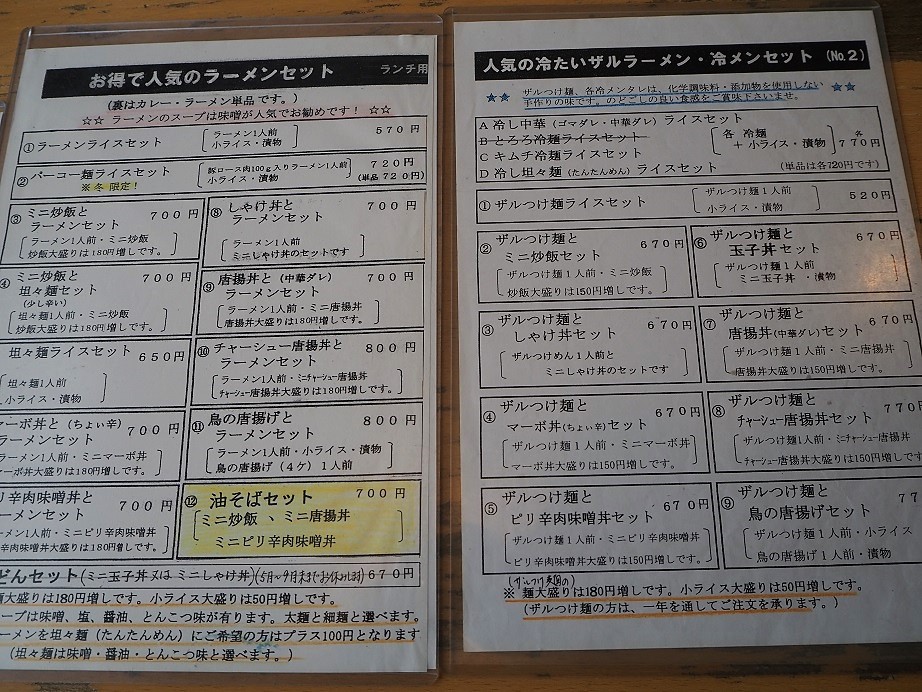 お得で人気のラーメンセット ランチ用
(裏はカレー・ラーメン単品です。)
☆☆ ラーメンのスープは味噌が人気でお勧めです！ ☆☆
①ラーメンライスセット
ラーメン1人前
小ライス・漬物
570円
②パーコー麺ライスセット
※冬 限定！
豚ロース肉100g入りラーメン1人前
小ライス・漬物
720円
(単品720円)
③ミニ炒飯と
ラーメンセット
700円
ラーメン1人前・ミニ炒飯
炒飯大盛りは180円増しです。
⑧しゃけ丼と
ラーメンセット
700円
ラーメン1人前
ミニしゃけ丼のセットです
④ミニ炒飯と
坦々麺セット
(少し辛い)
700円
坦々麺1人前・ミニ炒飯
炒飯大盛りは180円増しです。
⑨唐揚丼と(中華ダレ)
ラーメンセット
700円
ラーメン1人前・ミニ唐揚丼
唐揚丼大盛りは180円増しです。
坦々麺ライスセット
650円
坦々麺1人前
小ライス・漬物
⑩チャーシュー唐揚丼と
ラーメンセット
800円
ラーメン1人前・ミニチャーシュー唐揚丼
チャーシュー唐揚丼大盛りは180円増しです。
ーボ丼と(ちょい辛)
ラーメンセット
700円
ラーメン1人前・ミニマーボ丼
ーボ丼大盛りは180円増しです。
⑪鳥の唐揚げと
ラーメンセット
800円
ラーメン1人前・小ライス・漬物
鳥の唐揚げ(4ケ)1人前
リ辛肉味噌丼と
ラーメンセット
700円
ーメン1人前・ミニピリ辛肉味噌丼
辛肉味噌丼大盛りは180円増しです。
⑫油そばセット
700円
ミニ炒飯、ミニ唐揚丼
ミニピリ辛肉味噌丼
どんセット(ミニ玉子丼又はミニしゃけ丼)(5月~9月末までお休みします)670円
麺大盛りは180円増しです。小ライス大盛りは50円増しです。
ープは味噌、塩、醤油、とんこつ味が有ります。太麺と細麺と選べます。
ーメンを坦々麺(たんたんめん)にご希望の方はプラス100円となります
(坦々麺は味噌・醤油・とんこつ味と選べます。)
人気の冷たいザルラーメン・冷メンセット (No.2)
★★ ザルつけ麺、各冷メンタレは、化学調味料・添加物を使用しない ★★
手作りの味です。のどごしの良い食感をご賞味下さいませ。
A 冷し中華(ゴマダレ・中華ダレ)ライスセット
B とろろ冷麺ライスセット
C キムチ冷麺ライスセット
D 冷し坦々麺(たんたんめん)ライスセット
各 冷麺
+小ライス・漬物
各
770円
(単品は各720円です)
①ザルつけ麺ライスセット
ザルつけ麺1人前
小ライス・漬物
520円
②ザルつけ麺と
ミニ炒飯セット
670円
ザルつけ麺1人前・ミニ炒飯
炒飯大盛りは150円増しです。
⑥ザルつけ麺と
玉子丼セット
670円
ザルつけ麺1人前
ミニ玉子丼・漬物
③ザルつけ麺と
しゃけ丼セット
670円
ザルつけめん1人前と
ミニしゃけ丼のセットです
⑦ザルつけ麺と
唐揚丼(中華ダレ)セット
670円
ザルつけ麺1人前・ミニ唐揚丼
唐揚丼大盛りは150円増しです。
④ザルつけ麺と
マーボ丼(ちょい辛)セット
670円
ザルつけ麺1人前・ミニマーボ丼
マーボ丼大盛りは150円増しです。
⑧ザルつけ麺と
チャーシュー唐揚丼セット
770円
ザルつけ麺1人前・ミニチャーシュー唐揚丼
チャーシュー唐揚丼大盛りは150円増しです。
⑤ザルつけ麺と
ピリ辛肉味噌丼セット
670円
ザルつけ麺1人前・ミニピリ辛肉味噌丼
ピリ辛肉味噌丼大盛りは150円増しです。
⑨ザルつけ麺と
鳥の唐揚げセット
77
ザルつけ麺1人前・小ライス
鳥の唐揚げ1人前・漬物
※麺大盛りは180円増しです。小ライス大盛りは50円増しです。
(ザルつけ麺の方は、一年を通してご注文を承ります。)